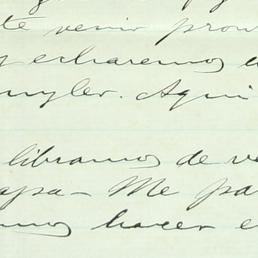 té venir pron
y echaremos u
uyler. Aqui
libramos de ve
apa - Me pa
mos hacer e